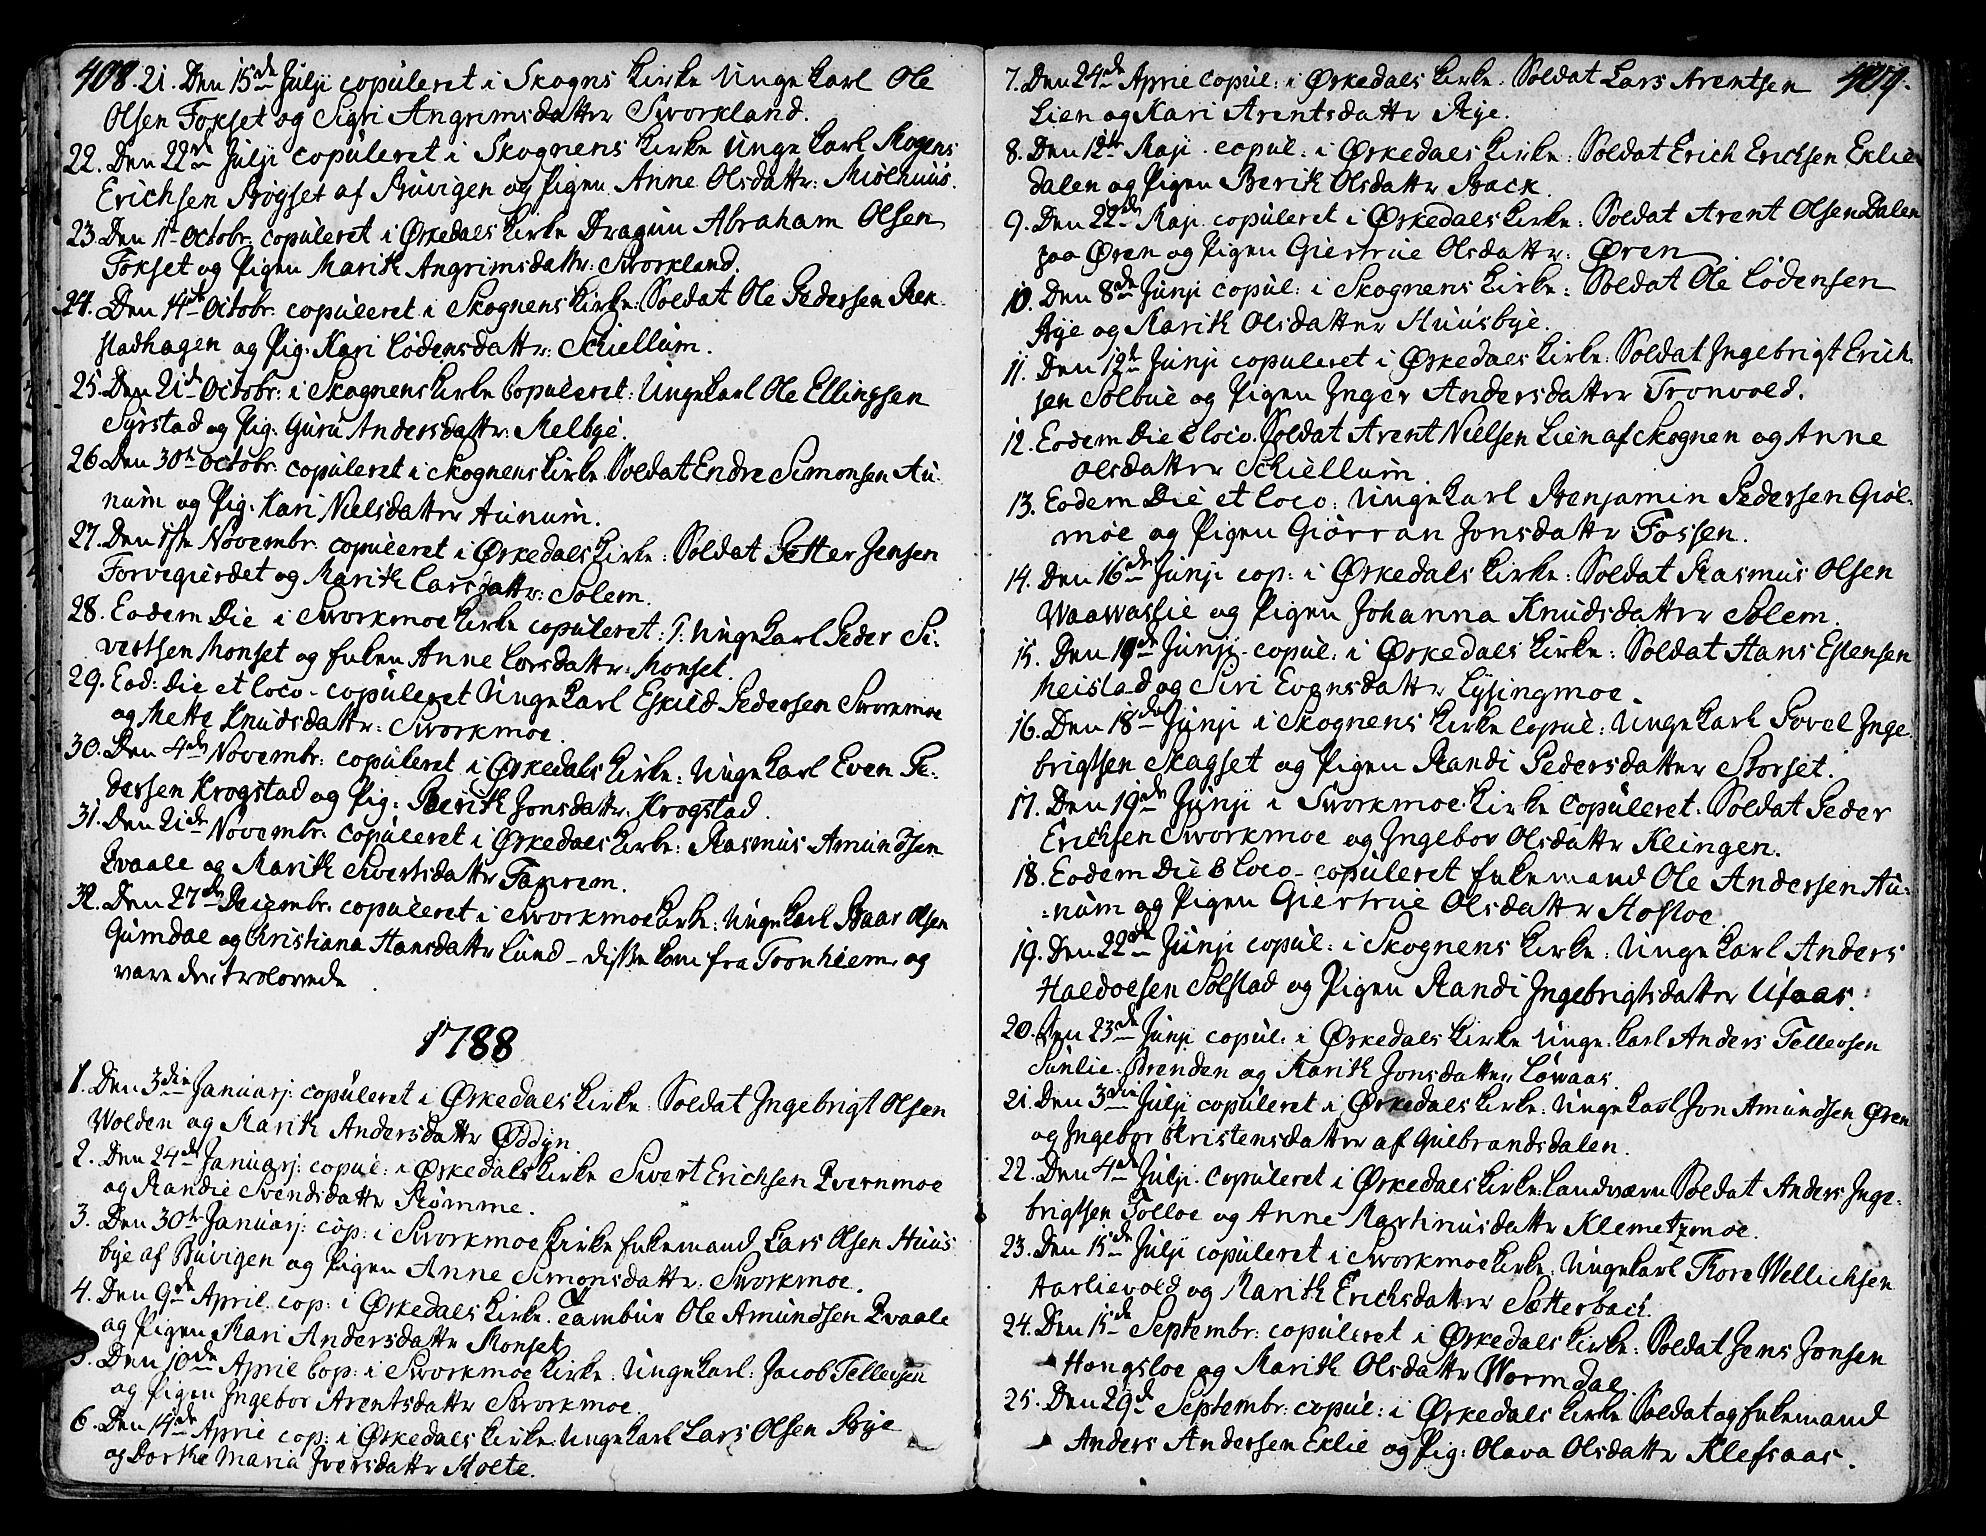 408. 21. Den 15de Julji copuleret i Skogns Kirke Unge Karl Ole
Olsen Fokset og Sigri Angrimsdatter Sworkland.
22. Den 22de Julji copuleret i Skognens Kirke Unge Karl Mogens
Erichsen Brøgset af Buvigen og Pigen Anne Olsdattr: Miølhuus.
23. Den 1te Octobr. copuleret i Ørkedals Kirke Dragun Abraham Olsen
Fokset og Pigen Marith Angrimsdattr: Sworkland.
24. Den 14de Octobr. copuleret i Skognens Kirke: Soldat Ole Pedersen Rek-
stadhagen og Pig: Kari Lodensdattr: Schiellum.
25. Den 21de Octobr: i Skognens Kirke Copuleret: Unge Karl Ole Ellingsen
Syrstad og Pig: Guru Andersdattr: Melbye.
26. Den 30te Octobr. copuleret i Skognens Kirke. Soldat Endre Simonsen Au-
num og Pig: Kari Nielsdatter Aunum.
27. Den 1ste Novembr. copuleret i Ørkedals Kirke: Soldat Petter Jensen
Forvegierdet og Marith Larsdattr: Solem.
28. Eodem Die i Sworkmoe Kirke copuleret: Unge Karl Peder Si-
vertsen Monset og Enken Anne Larsdattr: Monset.
29. Eod: die et loco - copuleret Unge Karl Eskild Pedersen Sworkmoe
og Mette Knudsdattr: Sworkmoe.
30. Den 4de Novembr: copuleret i Ørkedals Kirke: Unge Karl Even Pe-
dersen Krogstad og Pig: Berith Jonsdattr: Krogstad.
31. Den 21de Novembr: copuleret i Ørkedals Kirke: Rasmus Amundsen
Qvaale og Marith Sivertsdattr Fanrem.
32. Den 27de Decembr: copuleret i Sworkmoe Kirk: Unge Karl Baar Olsen
Gumdae og Christiana Hansdattr Lund - disse kom fra Tronhiem og
vare der trolovede
1788
1. Den 3die Januarj: copuleret i Ørkedals Kirke: Soldat Ingebrigt Olsen
Wolden og Marith Andersdattr Øddyn.
2. Den 24de Januarj: copul: i Ørkedals Kirke Siwert Erichsen Qvernmoe
og Randie Svendsdattr Skømme.
3. Den 30te Januarj: cop: i Sworkmoe Kirke Enkemand Lars Olsen Huus
bye af Buvigen og Pigen Anne Simonsdattr. Sworkmoe.
4. Den 9de April. cop: i Ørkedals Kirke. Tambur Ole Amundsen Qvaale
og Pigen Mari Andersdattr Monset
5. Den 10de April Cop: i Sworkmoe Kirke: Unge Karl: Jacob Tellevsen
og Pigen Ingebor Arentsdattr Sworkmoe.
6. Den 14de April cop: i Ørkedals Kirke. Unge Karl Lars Olsen Bye
og Dorthe Maria Iversdattr Holte.
409.
7. Den 24de April copul: i Ørkedals Kirke. Soldat Lars Arentsen
Lien og Kari Arentsdatter Rye.
8. Den 12te Maji. copul: i Ørkedals Kirke: Soldat Erich Erichsen Eklie
dalen og Pigen Berith Olsdattr Back.
9. Den 22de Maji copuleret i Ørkedals Kirke: Soldat Arent Olsen Dalen
paa Øren og Pigen Giertrue Olsdattr: Øren
10. Den 8de Junji copul: i Skognens Kirke: Soldat Ole Lodensen
Bye og Marith Olsdatter Huusbye.
11. Den 12te Junji copuleret i Ørkedals Kirke: Soldat Ingebrigt Erich
sen Solbue og Pigen Inger Andersdatter Tronvold.
12. Eodem Die & loco. Soldat Arent Nielsen Lien af Skognen og Anne
Olsdatter Schiellum.
13. Eodem Die et loco: Unge Karl Benjamin Pedersen Giøl-
moe og Pigen Giørran Jonsdattr Fossen.
14. Den 16de Junji cop: i Ørkedals Kirke: Soldat Rasmus Olsen
Waawaslie og Pigen Johanna Knudsdatter Solem.
15. Den 19de Junji. copul: i Ørkedals Kirke: Soldat Hans Estensen
Meistad og Siri Evensdattr Lysingmoe.
16. Den 18de Junji i Skognens Kirke Copul: Unge Karl Povel Inge-
brigtsen Skagset og Pigen Randi Pedersdatter Storset.
17. Den 19de Junji i Sworkmoe Kirke Copuleret. Soldat Peder
Erichsen Sworkmoe og Ingebor Olsdattr Klingen.
18. Eodem Die & Loco - copuleret Enkemand Ole Andersen Au-
-num og Pigen Giertrue Olsdattr Hofloe.
19. Den 22de Junji copul: i Skognens Kirke: Unge Karl Anders
Haldoesen Solstad og Pigen Randi Ingebrigtsdatter Ufaas.
20. Den 23de Junji copul: i Ørkedals Kirke Unge Karl Anders Tellevsen
Sunlie-Brenden og Marith Jonsdatter Løwaas.
21. Den 3die Julji copuleret i Ørkedals Kirke: Unge Karl Jon Amundsen Øren
og Ingebor Christensdatter af Gulbrandsdalen.
22. Den 4de Julji. Copuleret i Ørkedals Kirke: Landværn Soldat Anders Inge-
brigtsen Solloe og Anne Martinusdattr Klemetzmoe.
23. Den 15de Julji copuleret i Sworkmoe Kirke: Unge Karl Thore Wellichsen
Aarlievold og Marith Erichsdatter Sætterback.
24. Den 15de Septembr: copuleret i Ørkedals Kirke: Soldat Jens Jonsen
Hongsloe og Marith Olsdattr Wormdal.
25. Den 29de Septembr: copul: i Ørkedals Kirke Soldat og Enkemand
Anders Andersen Eklie og Pig: Olava Olsdattr Klefsaas.